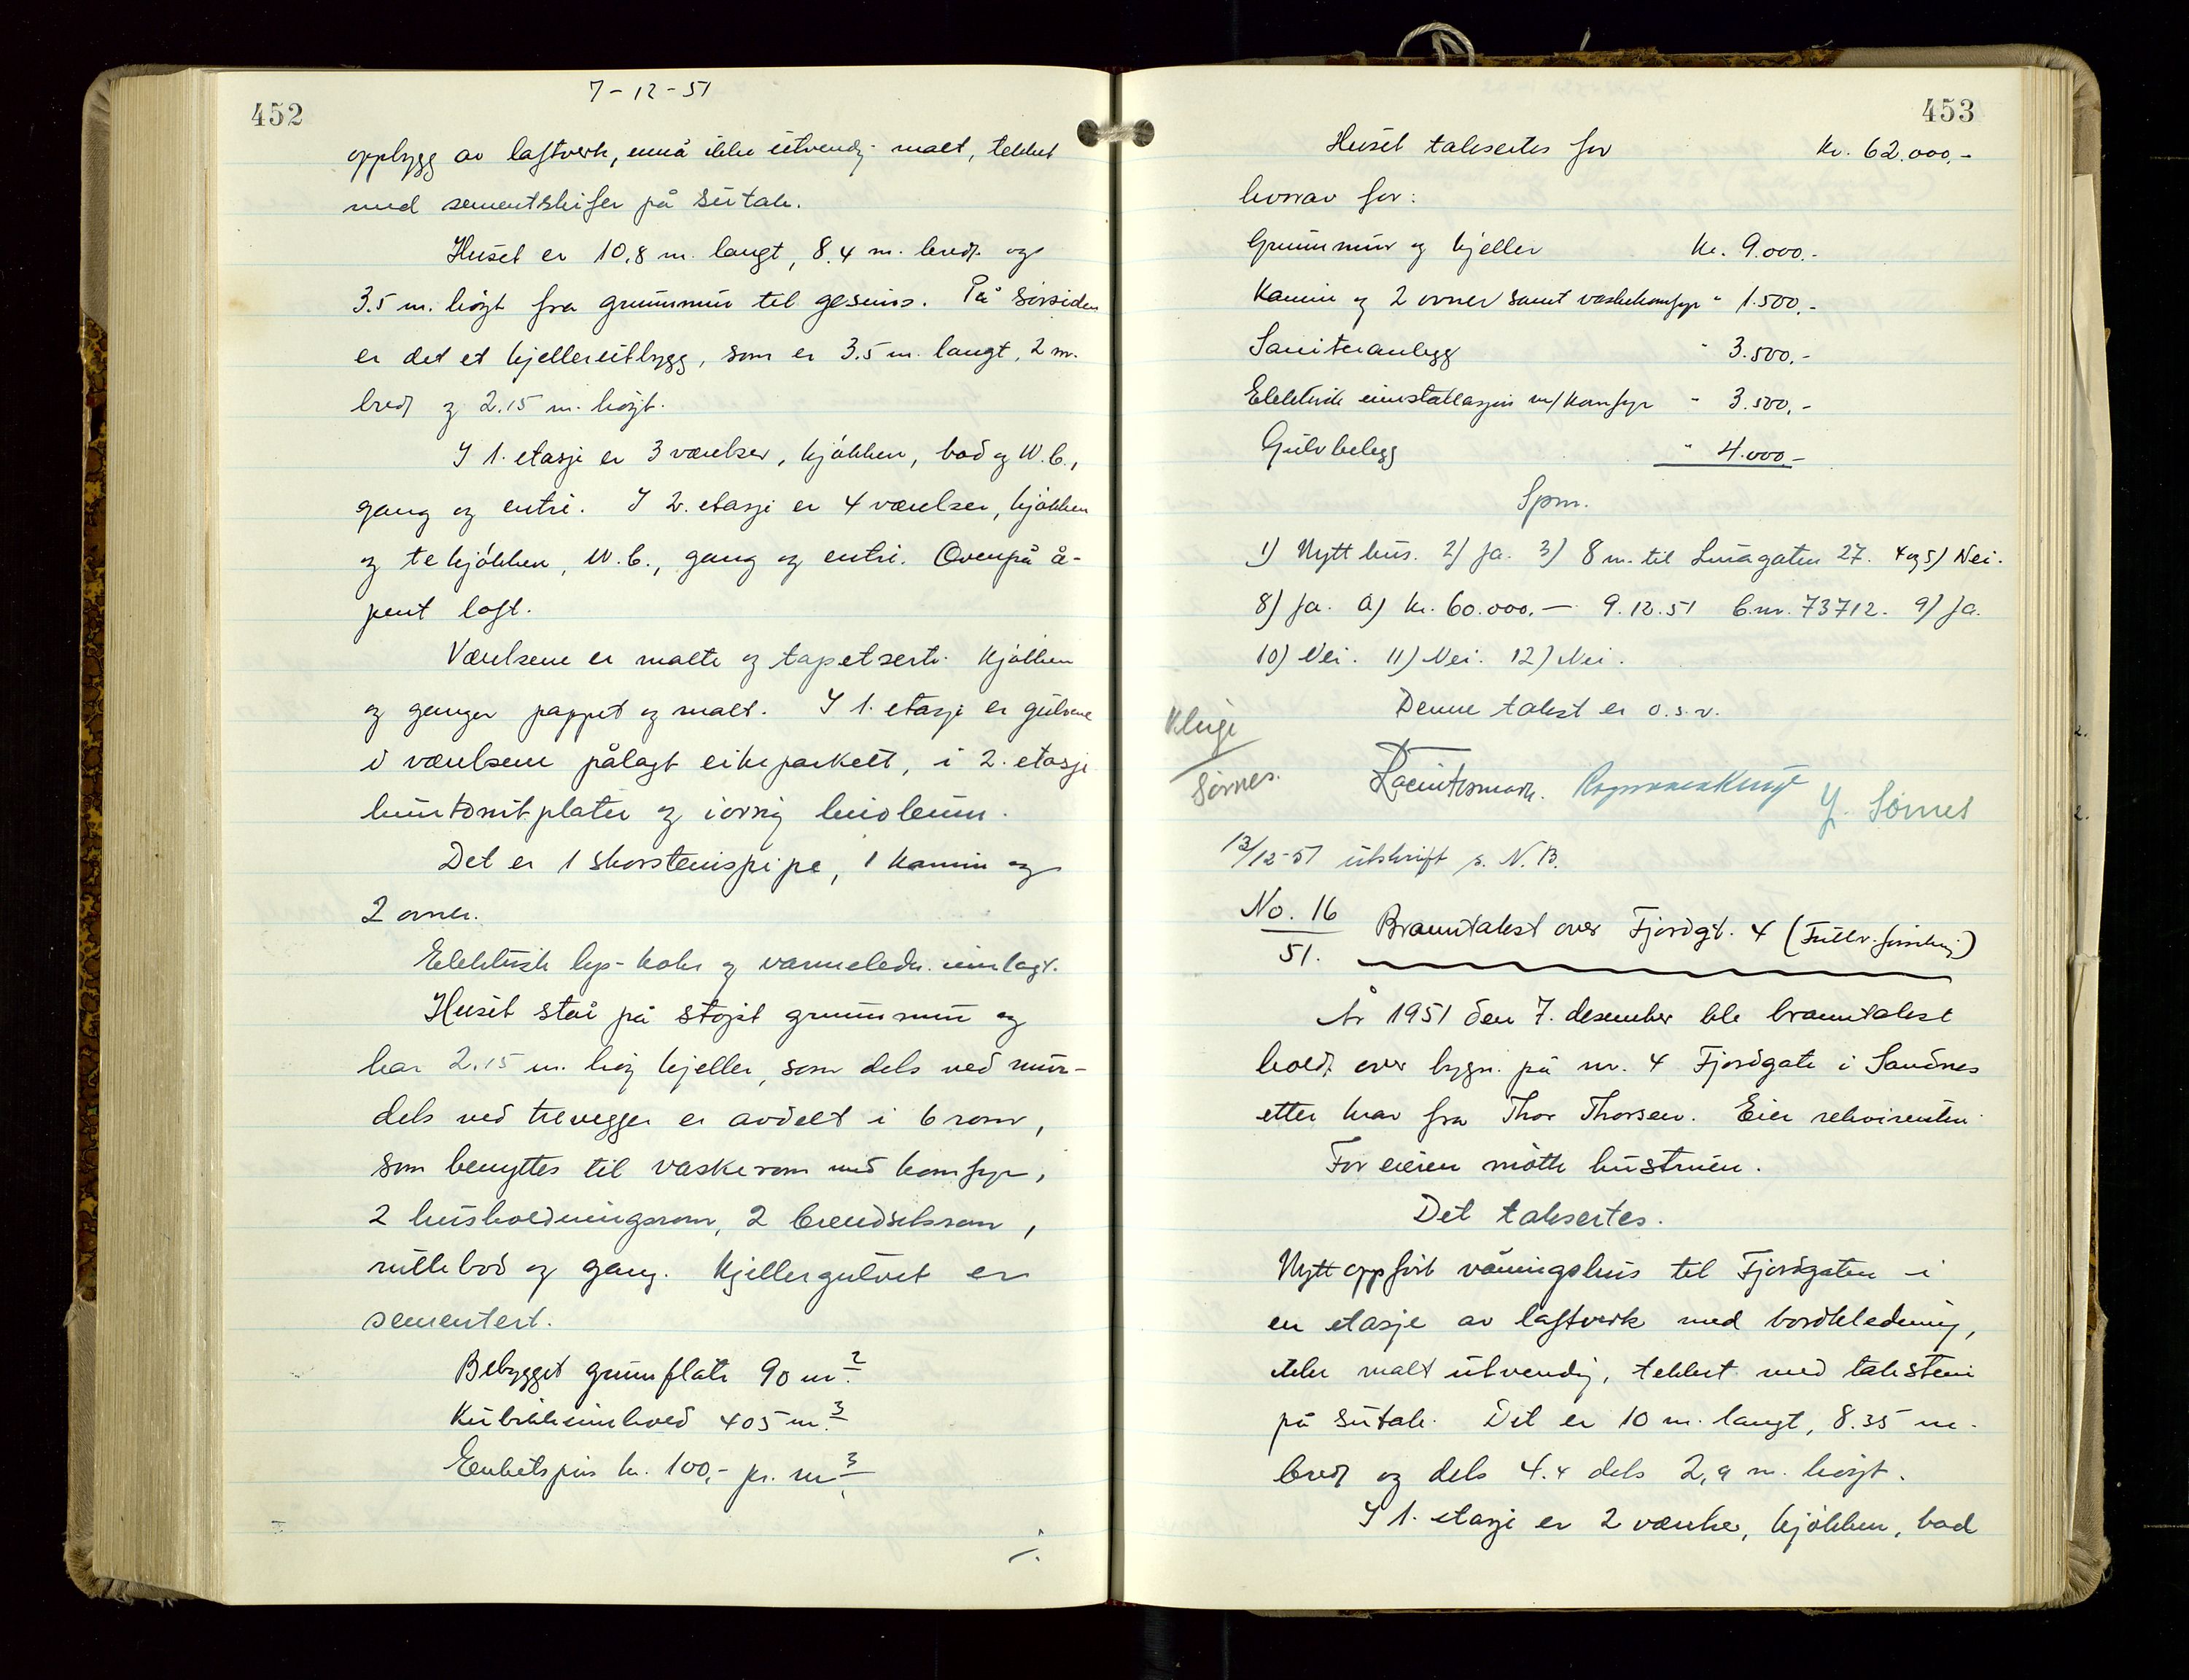 452
7-12-51
opplygg av laftverk, ennå ikke utvendig malt, tekket
med sementskifer på sutak.
Huset er 10,8 m. langt, 8.4 m. bredt og
3.5 m. høgt fra grunnmur til gesims. På sørsiden
er det et kjellerutbygg, som er 3.5 m. langt, 2 m.
bredt og 2.15 m. høgt.
I 1. etasje er 3 værelser, kjøkken, bad og W.C.,
gang og entre. I 2. etasje er 4 værelser, kjøkken
og tekjøkken, W.C., gang og entre. Ovenpå å-
pent loft.
Værelsene er malte og tapetserte. Kjøkken
og ganger pappet og malt. I 1. etasje er gulvene
i værelsene pålagt eikeparkett, i 2. etasje
huntonitplater og iørrig linoleum.
Det er 1 skorsteinspipe, 1 kamin og
2 ovner.
Elektrisk lys- koke og varmeledn. innlagt.
Huset står på støpt grunnmur og
har 2.15 m. høg kjeller, som dels ved mur-
dels ved trevegger er avdelt i 6 rom,
som benyttes til vaskerom med komfyr,
2 husholdningsrom, 2 brendselsrom,
rullebod og gang. Kjellergulvet er
sementert.
Bebygget grunnflate 90 m²
Kubikkinnhold 405 m³
Enhetspris kr. 100,- pr. m³
./.
453
Huset takseres for kr. 62.000,-
hvorav for:
Grunnmur og kjeller kr. 9.000.-
Kamin og 2 ovner samt vaskekomfyr " 1.500,-
Saniteranlegg " 3.500,-
Elektrisk innstallasjon m/komfyr " 3.500,-
Gulvbelegg " 4.000-
Spm.
1) Nytt hus. 2) Ja. 3) 8 m. til Luragaten 27. 4 og 5) Nei.
8) Ja. a) Kr. 60.000,- 9.12.51 C.nr. 73712. 9) Ja.
10) Nei. 11) Nei. 12) Nei.
Denne takst er o.s.v.
Kluge
Sørnes.
Sørnes
13/12-51 utskrift s. N.B.
No. 16
51.
Branntakst over Fjordgt. 4 (Fullv. forsikring)
År 1951 den 7. desember ble branntakst
holdt over bygn. på nr. 4 Fjordgate i Sandnes
etter krav fra Thor Thorsen. Eier rekvirenten.
For eieren møtte hustruen.
Det taksertes.
Nytt oppført våningshus til Fjordgaten i
en etasje av laftverk med bordkledning,
ikke malt utvendig, tekket med takstein
på sutak. Det er 10 m. langt, 8.35 m.
bredt og dels 4.4 dels 2,9 m. høgt.
I 1. etasje er 2 værelse, kjøkken, bad